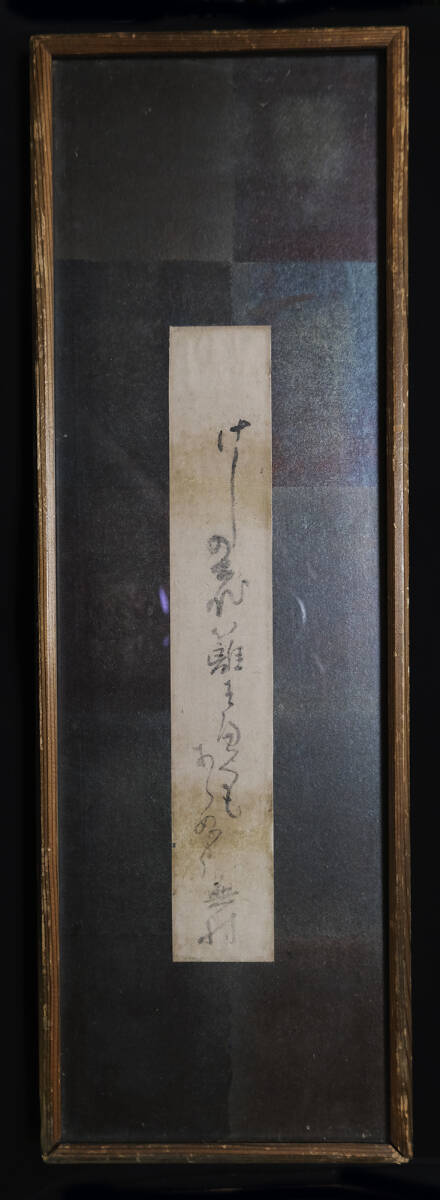 けしの花籬すへくも
あらぬ哉 蕪村